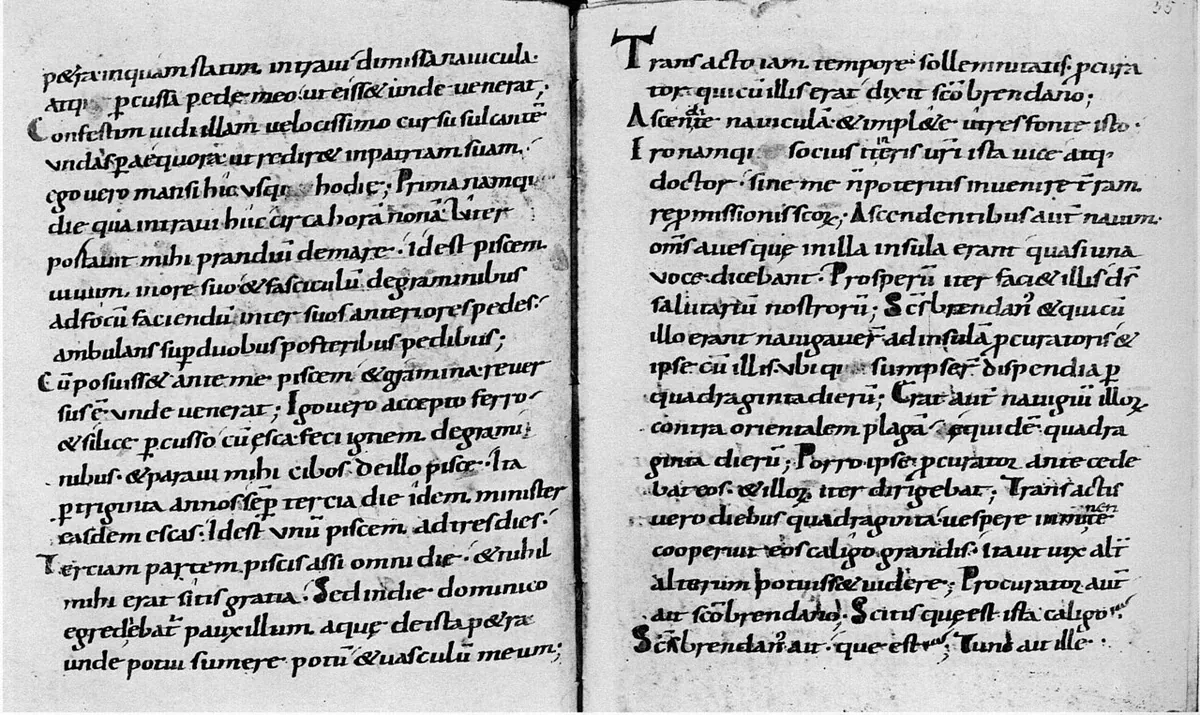 petra inquam statim intravi dimissa navicula.
atq; pcussa pede meo ut eiss& unde venerat;
Confestim vidi illam velocissimo cursu sulcantē
vndas p aequora ut redir& in patriam suam.
ego vero mansi hic vsq; hodie; Prima namq;
die qua intravi huc circa horā nonā luter
postavit mihi prandiū de mare. id est piscem
uiuum in ore suo & fasciculū de graminibus
ad focū faciendū inter suos anteriores pedes.
ambulans sup duobus posteribus pedibus;
Cū posuiss& ante me piscem & gramina rever
sus ē unde venerat; Igo vero accepto ferro
& silice pcusso cū esca feci ignem de grami
nibus. & paravi mihi cibos de illo pisce. Ita
p triginta annos sēp tercia die idem minister
easdem escas. Id est vnū piscem ad tres dies.
Terciam partem piscis assi omni die. & nihil
mihi erat sitis gratia. Sed in die dominico
egredebat̄ pauxillum aquę de ista petra
unde potui sumere potū & vasculū meum;
55
Transacto iam tempore sollemnitatis. pcura
tor. qui cū illis erat dixit scō brendano;
Ascendite naviculā & impl&e utres fonte isto.
Iro namq; socius itineris uri ista vice atq;
doctor. sine me n̄ poteritis invenire t̄ram
repmissionis scoꝝ; Ascendentibus aut̄ navim.
om̄s aves quę in illa insula erant quasi una
voce dicebant. Prosperū iter faci& illis ds̄
salutariū nostrorū; Scs̄ brendan' & qui cū
illo erant navigaver̄ ad insulā pcuratoris &
ipse cū illis. vbi q; sumpser̄ dispendia p
quadraginta dierū; Erat aut̄ navigiū illoꝝ
contra orientalem plagā equidē quadra
ginta dierū; Porro ipse pcurator antecede
bat eos. & illoꝝ iter dirigebat; Transactis
vero diebus quadraginta. vespere inminēte
cooperuit eos caligo grandis. ita ut uix alt̄
alterum potuiss& videre; Procurator aut̄
ait scō brendano. Scitis quę est ista caligo
Scs̄ brendan' ait. que est; Tunc ait ille.